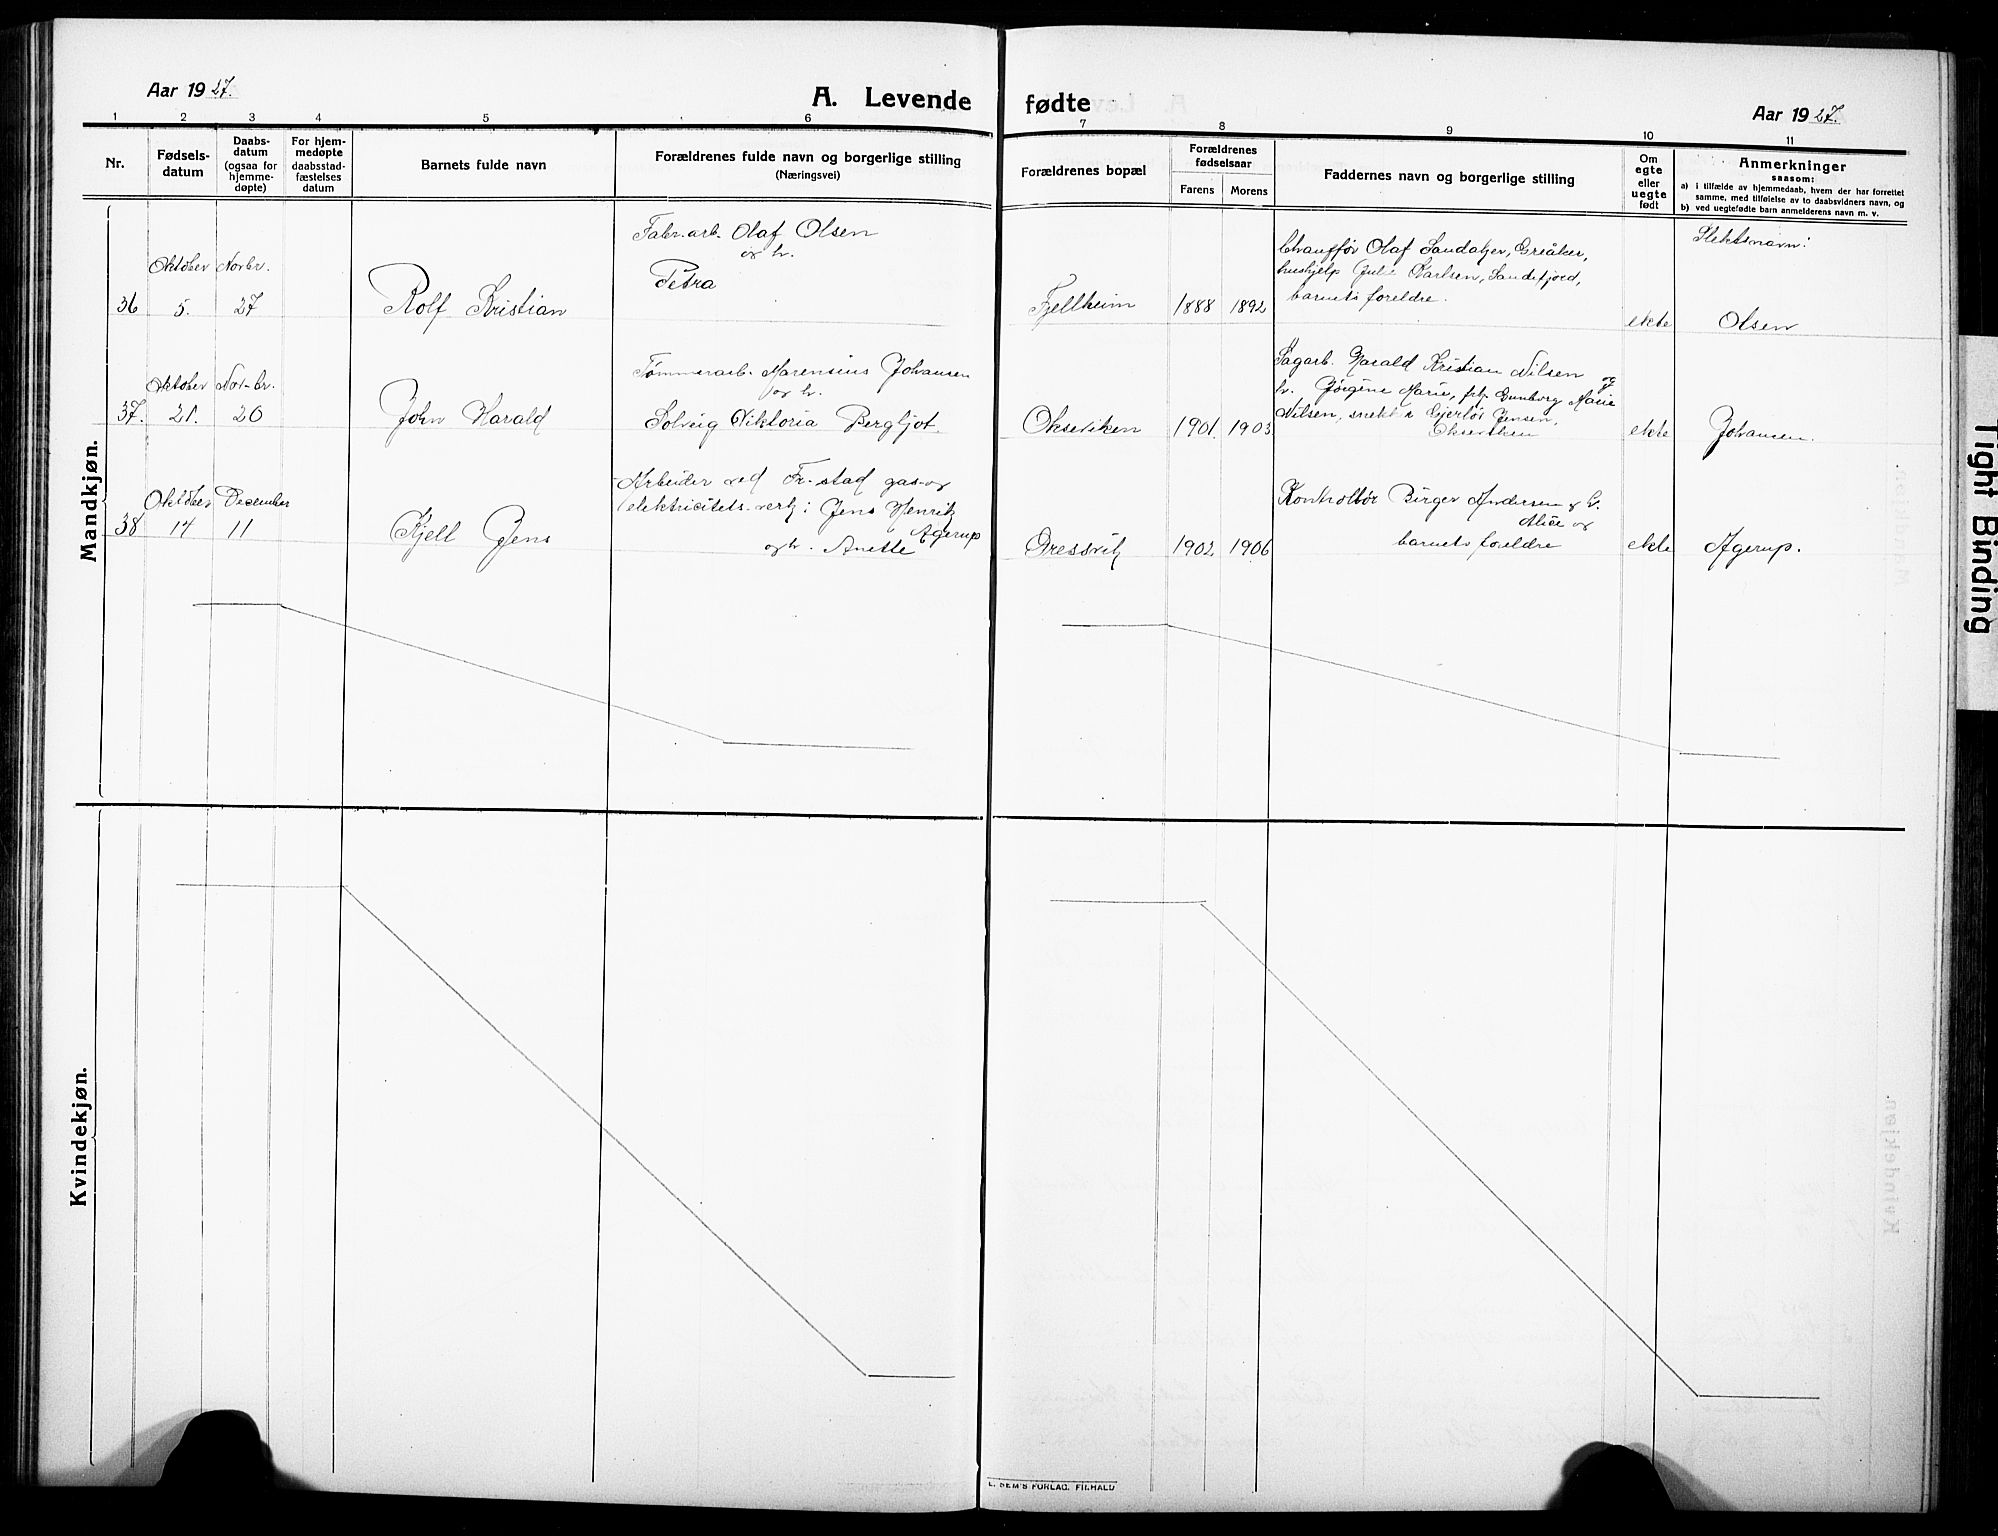 Aar 1927.
A. Levende
1 2 3 4 5 6
Nr.
Fødsels-
datum
Daabs-
datum
(ogsaa for
hjemme-
døpte)
For hjem-
medøpte
daabsstad-
fæstelses
datum
Barnets fulde navn
Forældrenes fulde navn og borgerlige stilling
(Næringsvei)
Mandkjøn.
Fabr.arb. Olaf Olsen
og h.
Oktober Novbr.
Petra
36 5. 27 Rolf Kristian
Tømmerarb. Marensius Johansen
og h.
Oktober Nov-br.
37. 21. 20 John Harald Solveig Viktoria Bergljot.
Arbeider ved Fr.stad gas- og
Oktober December
elektricitets-verk: Jens Henrik
Agerup
38 14 11 Kjell Jens og h. Anette
Kvindekjøn.
fødte
Aar 1927.
7 8 9 10 11
Forældrenes bopæl
Forældrenes
fødselsaar
Farens Morens
Faddernes navn og borgerlige stilling
Om
egte
eller
uegte
født
Anmerkninger
saasom:
a) i tilfælde av hjemmedaab, hvem der har forrettet
samme, med tilføielse av to daabsvidners navn, og
b) ved uegtefødte barn anmelderens navn m. v.
Slektsnavn:
Chauffør Olaf Sandager, Greåker,
hushjelp Julie Karlsen, Sandefjord,
barnets foreldre.
Fjellheim 1888 1892 ekte Olsen
Sagarb. Harald Kristian Nilsen og
h. Jørgine Marie, frk. Gunborg Marie
Nilsen, Jensen,
Okseviken
Okseviken 1901. 1903 ekte Johansen.
Kontrollør Birger Andersen og h.
Alice og
barnets foreldre
Gressvik 1902 1906 ekte Agerup.
E. SEM'S FORLAG. FR.HALD
Tight Binding